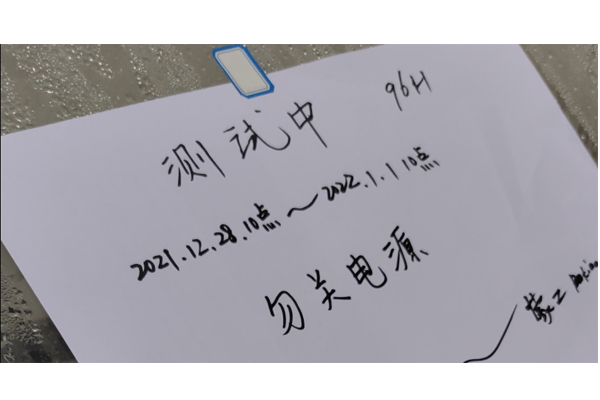 测试中 96H
2021.12.28.10点～2022.1.1 10点
勿关电源
蒙工